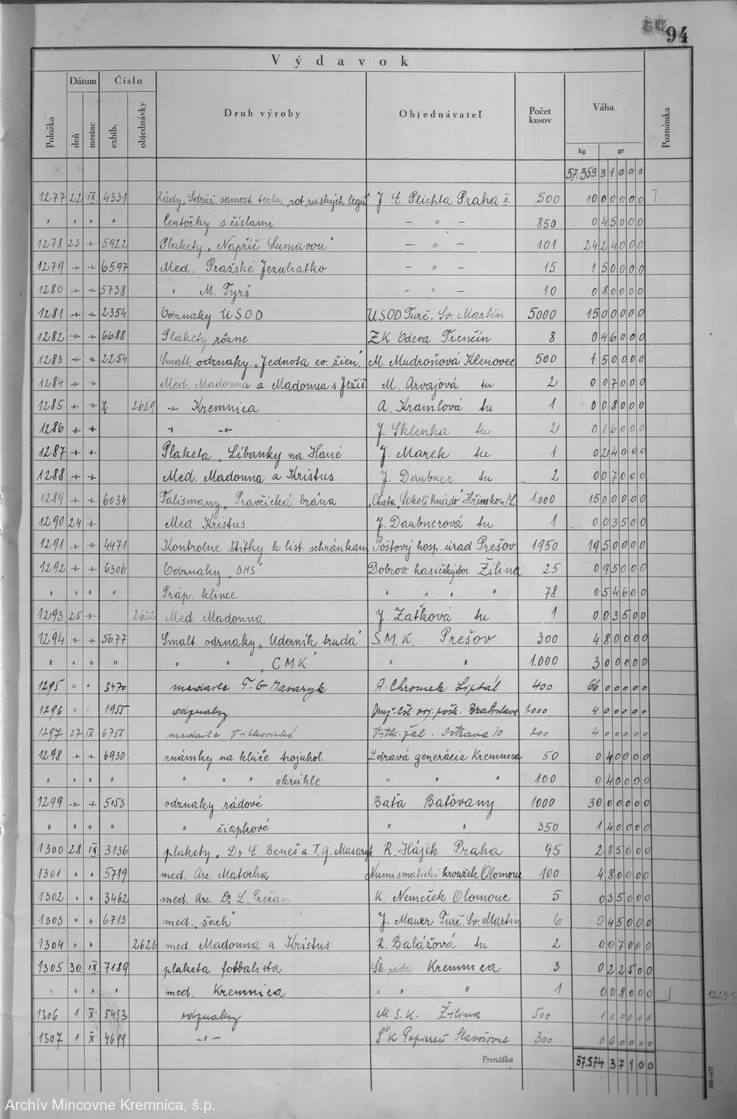 94
Výdavok
Položka Dátum deň mesiac Číslo exhib. objednávky Druh výroby Objednávateľ Počet kusov Váha kg gr Poznámka
57.359 31000
1277 22 IX. 4331 Rády samost. rot ruských legií J. E. Plichta Praha II. 500 10 00000
" " " Centočky s číslami - " - 850 0 45000
1278 23 " 5922 Plakety „Napříč Šumavou" - " - 101 24 24000
1279 " " 6597 Med. Pražské Jezuliatko - " - 15 1 50000
1280 " " 5738 " M. Tyrš - " - 10 0 80000
1281 " " 2354 Odznaky USOD USOD Turč. Sv. Martin 5000 15 00000
1282 " " 6688 Plakety rôzne ZK Odeva Trenčín 8 0 46000
1283 " " 2254 Smalt. odznaky „Jednota ev. žien" M. Mudroňová Klenovec 500 1 50000
1284 " " Med. Madonna a Madonna s Ježiš. M. Arvajová tu 2 0 07000
1285 " " 2629 " Kremnica A. Kramlová tu 1 0 08000
1286 " " " " J. Sklenka tu 2 0 16000
1287 " " Plaketa „Líbánky na Hané J. Marek tu 1 0 24000
1288 " " Med. Madonna a Kristus J. Daubner tu 2 0 07000
1289 " " 6034 Talismany „Pravčická brána Chata „Sokolí hnízdo" Hřensko n/L. 1.000 15 00000
1290 24 " Med. Kristus J. Daubnerová tu 1 0 03500
1291 " " 4471 Kontrolne štítky k list. schránkam Poštový hosp. úrad Prešov 1950 19 50000
1292 " " 6306 Odznaky „DHS" Dobrov. hasičský zbor Žilina 25 0 95000
" " " Práp. klince " " " " 78 0 54600
1293 25 " 2622 Med. Madonna J. Zaťková tu 1 0 03500
1294 " " 5677 Smalt. odznaky „Uderník truda" S.M.K. Prešov 300 4 80000
" " " " " „CMK" " " 1.000 3 00000
1295 " " 3470 medaile T. G Masaryk A. Chromek Liptál 400 66 00000
1296 " " 1955 odznaky Bratislava 1.000 4 0000
1297 27 IX 6756 medaile Vítkovické Vítk. žel. Ostrava 10 200 4 0000
1298 " " 6930 známky na kľúče trojuhol. Zdravá generácia Kremnica 50 0 40000
" " " " " " okrúhle " " " 100 0 40000
1299 " " 5153 odznaky rádové Baťa Baťovany 1000 30 00000
" " " " čiapkové " " 350 1 40000
1300 28 IX 3136 plakety „Dr E. Beneš a T. G. Masaryk R. Hájek Praha 95 2 85000
1301 " " 5719 med. Arc. Matocha Numismatický kroužek Olomouc 100 4 80000
1302 " " 3462 med. Arc. Dr L. Prečan K. Nemeček Olomouc 5 0 35000
1303 " " 6713 med. „šach" J. Mauer Turč. Sv. Martin 6 0 45000
1304 " " 2626 med. Madonna a Kristus Z. Balážová tu 2 0 07000
1305 30. IX 7189 plaketa fotbalista Šk. rada Kremnica 3 0 22500
" " " med. Kremnica " " 1 0 08000
1306 1 X 5453 odznaky M. S. K. Žilina 500 1 0000
1307 1 X 4699 - " - ŠK Papiereň Slavošovce 300 0 6000
Prenáška 57.574 37100
Archív Mincovne Kremnica, š.p.